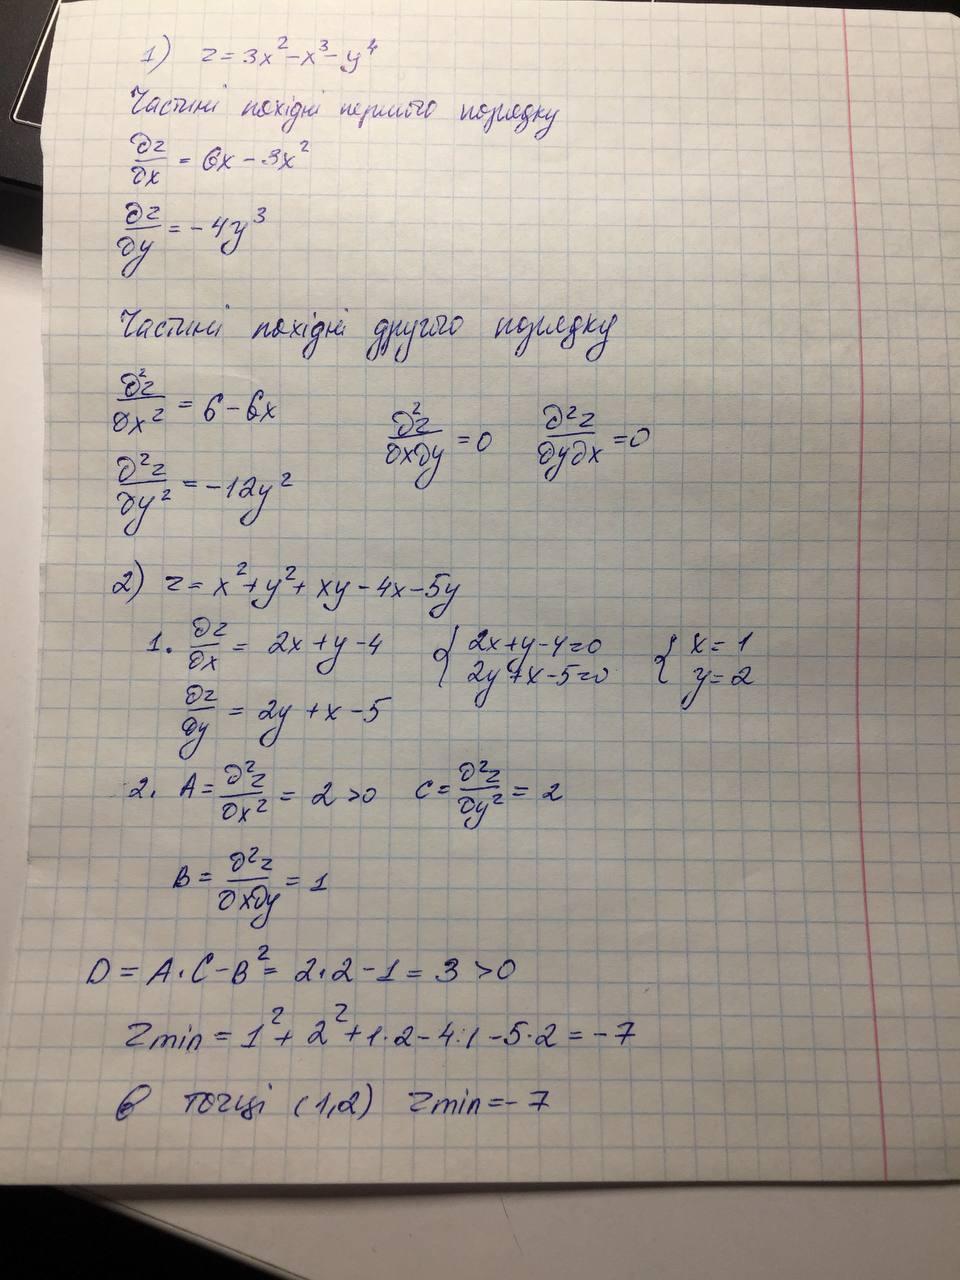 1) z = 3x² - x³ - y⁴
Частині похідні першого порядку
∂z/∂x = 6x - 3x²
∂z/∂y = -4y³
Частині похідні другого порядку
∂²z/∂x² = 6 - 6x
∂²z/∂x∂y = 0 ∂²z/∂y∂x = 0
∂²z/∂y² = -12y²
2) z = x² + y² + xy - 4x - 5y
1. ∂z/∂x = 2x + y - 4 { 2x + y - 4 = 0 { x = 1
2y + x - 5 = 0 y = 2
∂z/∂y = 2y + x - 5
2. A = ∂²z/∂x² = 2 > 0 C = ∂²z/∂y² = 2
B = ∂²z/∂x∂y = 1
D = A·C - B² = 2·2 - 1 = 3 > 0
Zmin = 1² + 2² + 1·2 - 4·1 - 5·2 = -7
в точці (1,2) Zmin = -7